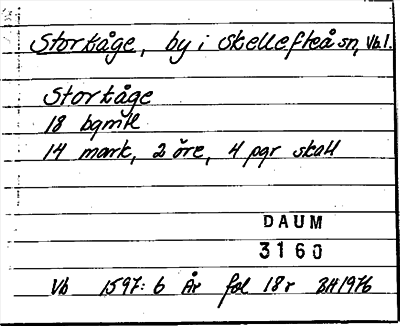 Storkåge, by i Skellefteå sn, Vb.l.
Storkåge
18 bgmtl
14 mark, 2 öre, 4 pgr skatt
DAUM
3160
Vb 1597:6 År fol 18r BH 1976